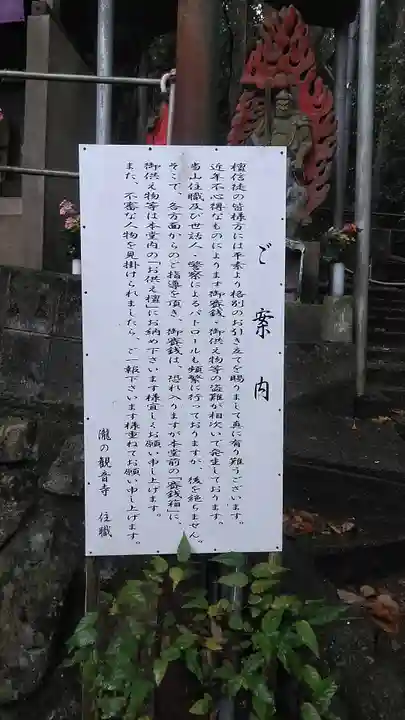 ご案内
檀信徒の皆様方には平素より格別のお引き立てを賜りまして真に有り難うございます。
近年不心得なものによります御賽銭・御供え物等の盗難が相次いで発生しております。
当山住職及び世話人・警察によるパトロールも頻繁に行っておりますが、後を絶ちません。
そこで、各方面からのご指導を頂き、御賽銭は、恐れ入りますが本堂前の「賽銭箱」に、
御供え物等は本堂内の「お供え壇」にお納め下さいます様宜しくお願い申し上げます。
また、不審な人物を見掛けられましたら、ご一報下さいます様重ねてお願い申し上げます。
瀧の観音寺 住職